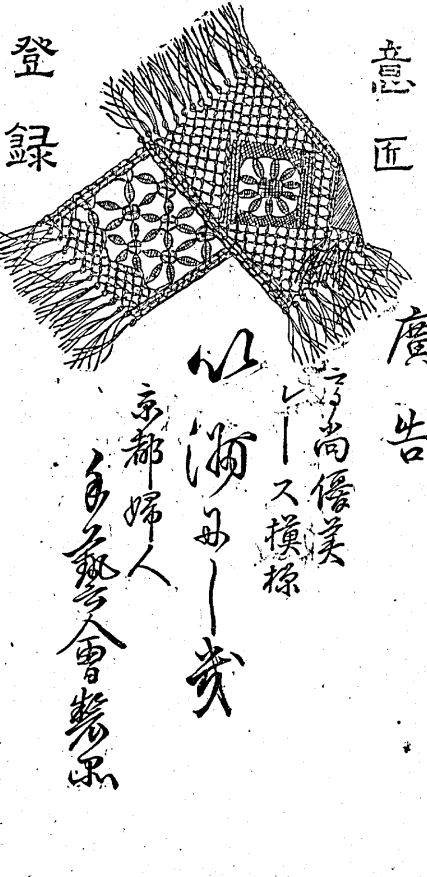 意匠
登録
廣告
高尚優美
レース模様
以
京都婦人
手藝會製品